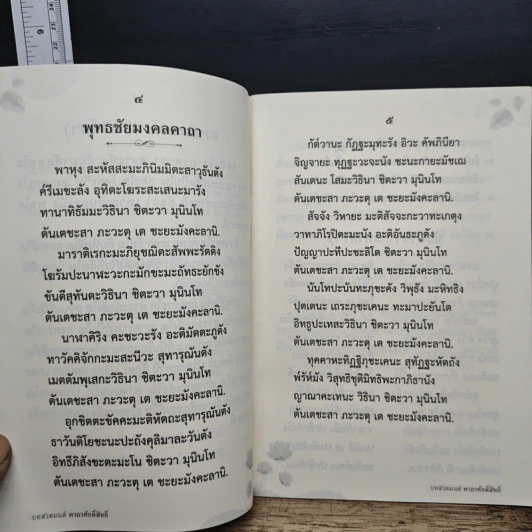 ๔
พุทธชัยมงคลคาถา
พาหุง สะหัสสะมะภินิมมิตะสาวุธันตัง
ค๎รีเมขะลัง อุทิตะโฆระสะเสนะมารัง
ทานาทิธัมมะวิธินา ชิตะวา มุนินโท
ตันเตชะสา ภะวะตุ เต ชะยะมังคะลานิ.
มาราติเรกะมะภิยุชฌิตะสัพพะรัตติง
โฆรัมปะนาฬะวะกะมักขะมะถัทธะยักขัง
ขันตีสุทันตะวิธินา ชิตะวา มุนินโท
ตันเตชะสา ภะวะตุ เต ชะยะมังคะลานิ.
นาฬาคิริง คะชะวะรัง อะติมัตตะภูตัง
ทาวัคคิจักกะมะสะนีวะ สุทารุณันตัง
เมตตัมพุเสกะวิธินา ชิตะวา มุนินโท
ตันเตชะสา ภะวะตุ เต ชะยะมังคะลานิ.
อุกขิตตะขัคคะมะติหัตถะสุทารุณันตัง
ธาวันติโยชะนะปะถังคุลิมาละวันตัง
อิทธีภิสังขะตะมะโน ชิตะวา มุนินโท
ตันเตชะสา ภะวะตุ เต ชะยะมังคะลานิ.
บทสวดมนต์ พาถาศักดิ์สิทธิ์
๕
กัต๎วานะ กัฏฐะมุทะรัง อิวะ คัพภินียา
จิญจายะ ทุฏฐะวะจะนัง ชะนะกายะมัชเฌ
สันเตนะ โสมะวิธินา ชิตะวา มุนินโท
ตันเตชะสา ภะวะตุ เต ชะยะมังคะลานิ.
สัจจัง วิหายะ มะติสัจจะกะวาทะเกตุง
วาทาภิโรปิตะมะนัง อะติอันธะภูตัง
ปัญญาปะทีปะชะลิโต ชิตะวา มุนินโท
ตันเตชะสา ภะวะตุ เต ชะยะมังคะลานิ.
นันโทปะนันทะภุชะคัง วิพุธัง มะหิทธิง
ปุตเตนะ เถระภุชะเคนะ ทะมาปะยันโต
อิทธูปะเทสะวิธินา ชิตะวา มุนินโท
ตันเตชะสา ภะวะตุ เต ชะยะมังคะลานิ.
ทุคคาหะทิฏฐิภุชะเคนะ สุทัฏฐะหัตถัง
พ๎รัห๎มัง วิสุทธิชุติมิทธิพะกาภิธานัง
ญาณาคะเทนะ วิธินา ชิตะวา มุนินโท
ตันเตชะสา ภะวะตุ เต ชะยะมังคะลานิ.
บทสวดมนต์ พาถาศักดิ์สิทธิ์